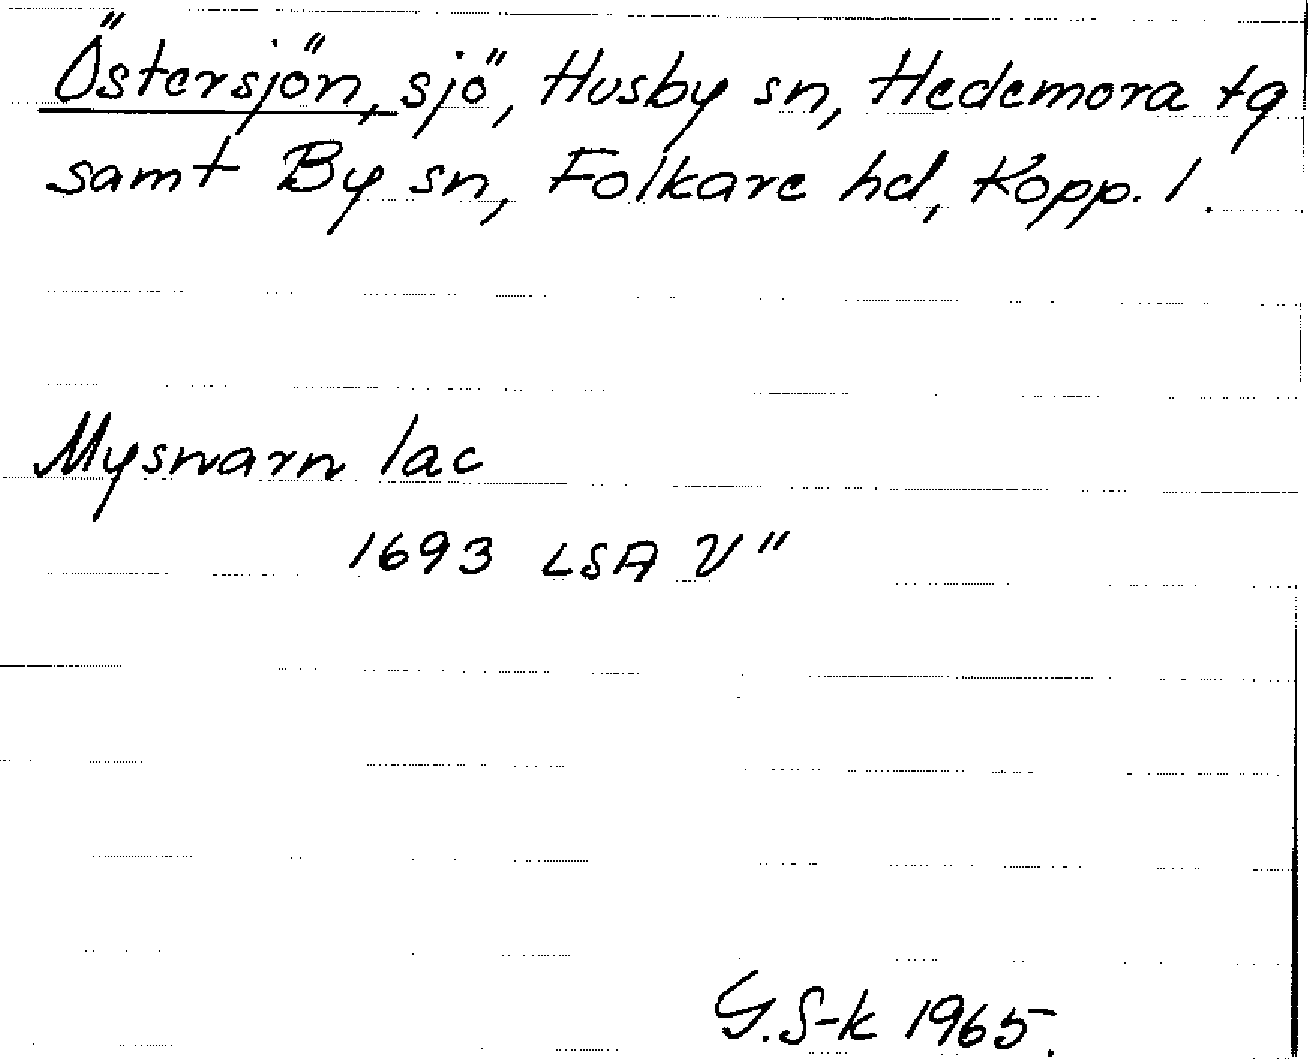 Östersjön, sjö, Husby sn, Hedemora tg
samt By sn, Folkare hd, Kopp. l.
Myswarn lac
1693 LSA V"
G.S-k 1965.